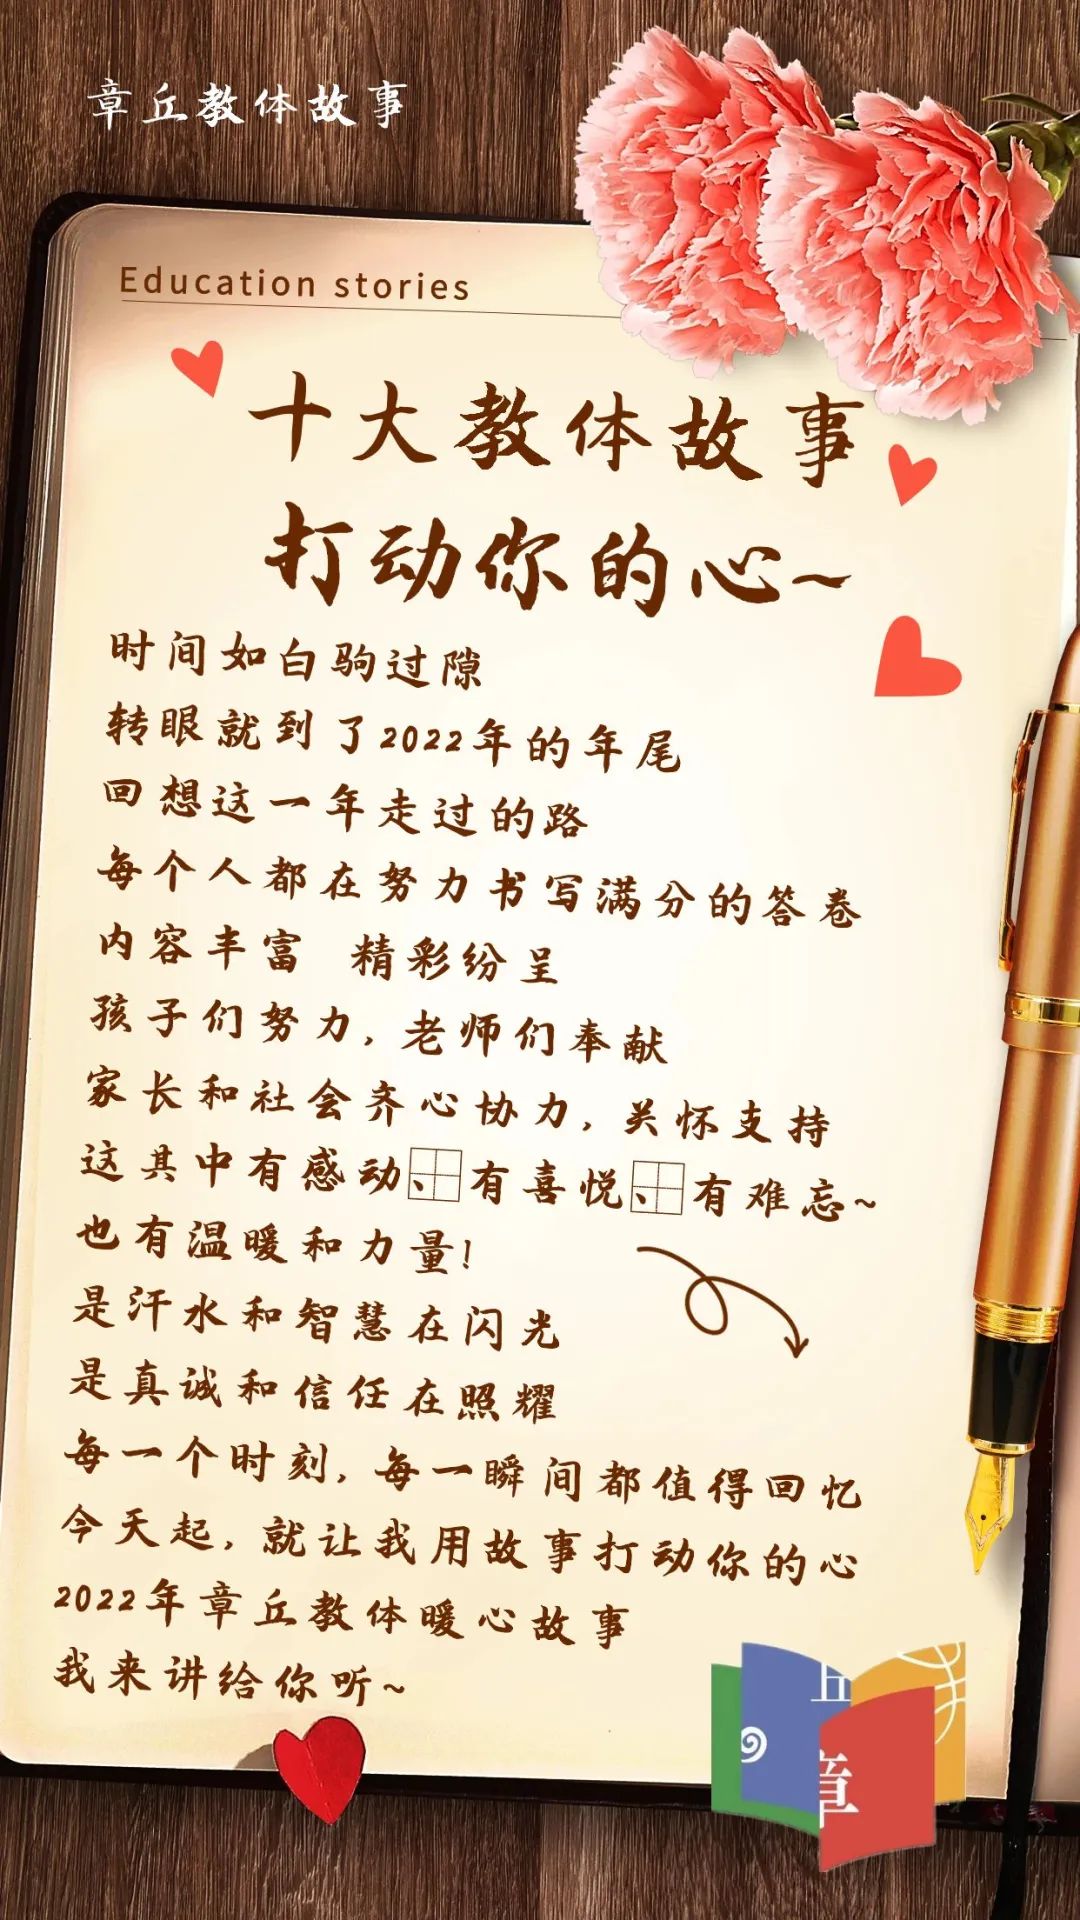 章丘教体故事
Education stories
十大教体故事
打动你的心~
时间如白驹过隙
转眼就到了2022年的年尾
回想这一年走过的路
每个人都在努力书写满分的答卷
内容丰富 精彩纷呈
孩子们努力,老师们奉献
家长和社会齐心协力,关怀支持
这其中有感动、有喜悦、有难忘~
也有温暖和力量!
是汗水和智慧在闪光
是真诚和信任在照耀
每一个时刻,每一瞬间都值得回忆
今天起,就让我用故事打动你的心
2022年章丘教体暖心故事
我来讲给你听~
丘
章